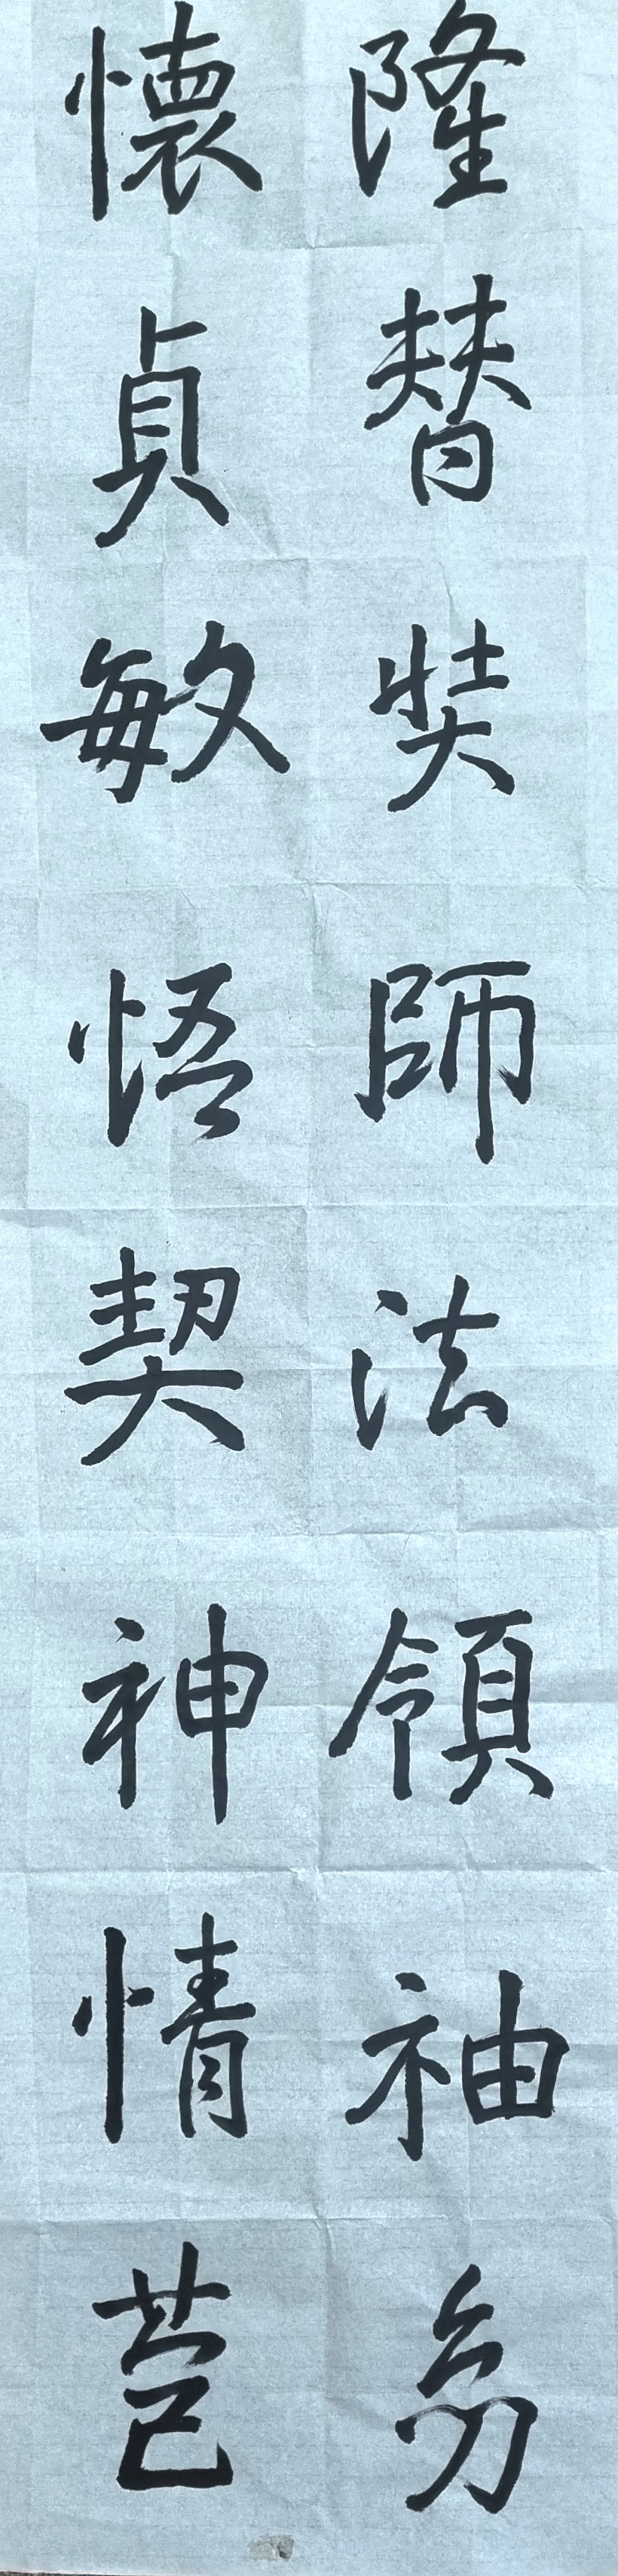 隆替奘師法領袖幼
懷貞敏悟契神情苞